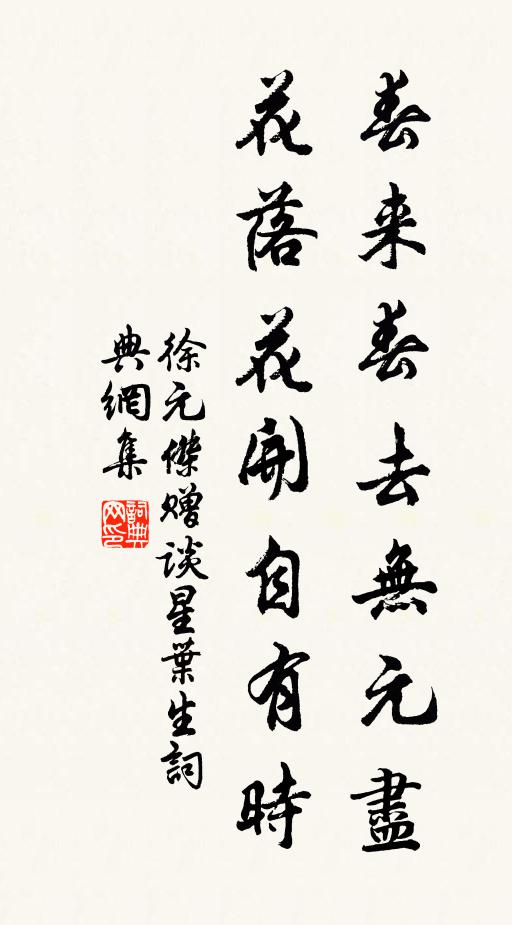 春来春去無元盡
花落花開自有時
徐元傑赠谈星葉生詞
典網集
詞典网印